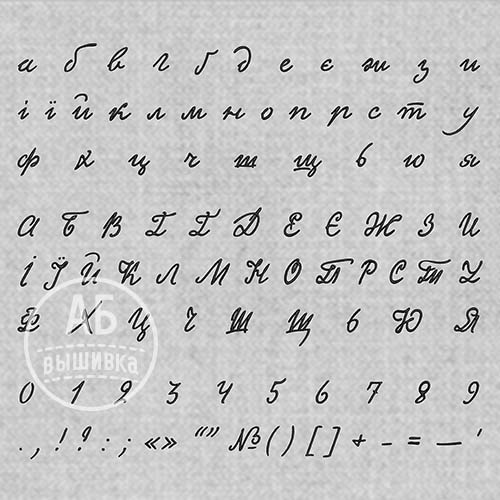 а б в г ґ д е є ж з и
і ї й к л м н о п р с т у
ф х ц ч ш щ ь ю я
А Б В Г Ґ Д Е Є Ж З И
І Ї Й К Л М Н О П Р С Т У
Ф Х Ц Ч Ш Щ Ь Ю Я
АБ
вышивка
0 1 2 3 4 5 6 7 8 9
. , ! ? : ; « » “ ” № ( ) [ ] + - = — '